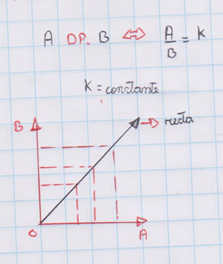 A DP. B ⇔ A/B = K
K = constante
B
→ reta
O
A